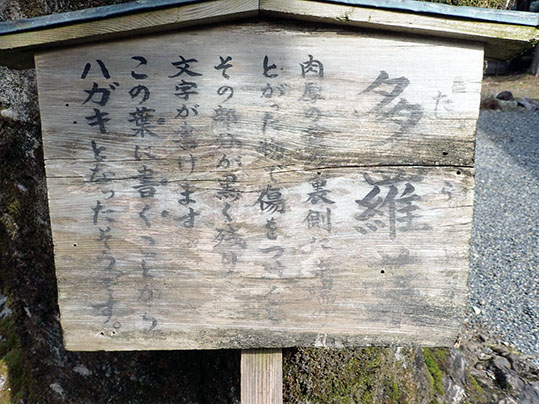 多羅葉
たらよう
肉厚の葉の裏側に
とがった物で傷をつけると
その部分が黒く残り
文字が書けます。
この葉に書くことから
ハガキとなったそうです。